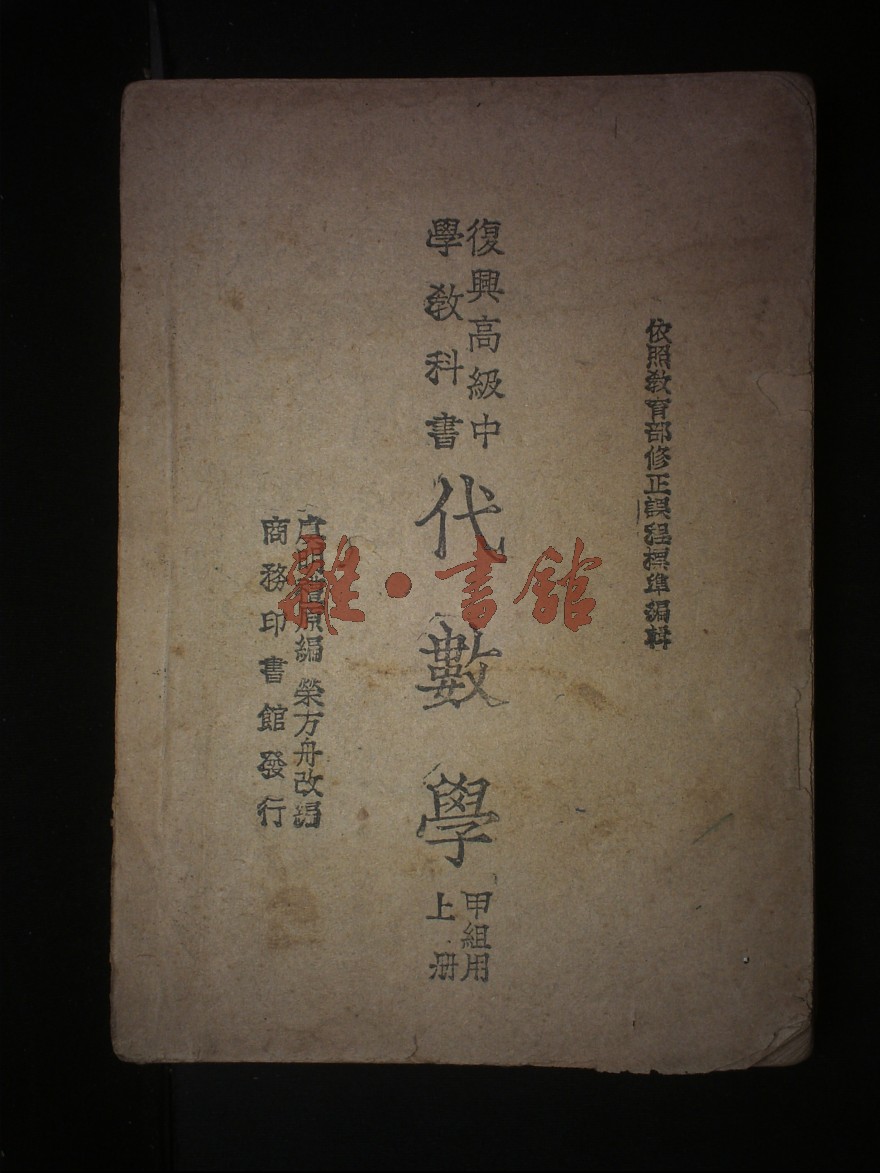 依照教育部修正課程標準編輯
復興高級中
學教科書
代數學
甲組用
上册
原編 榮方舟改編
商務印書館發行
雜·書館